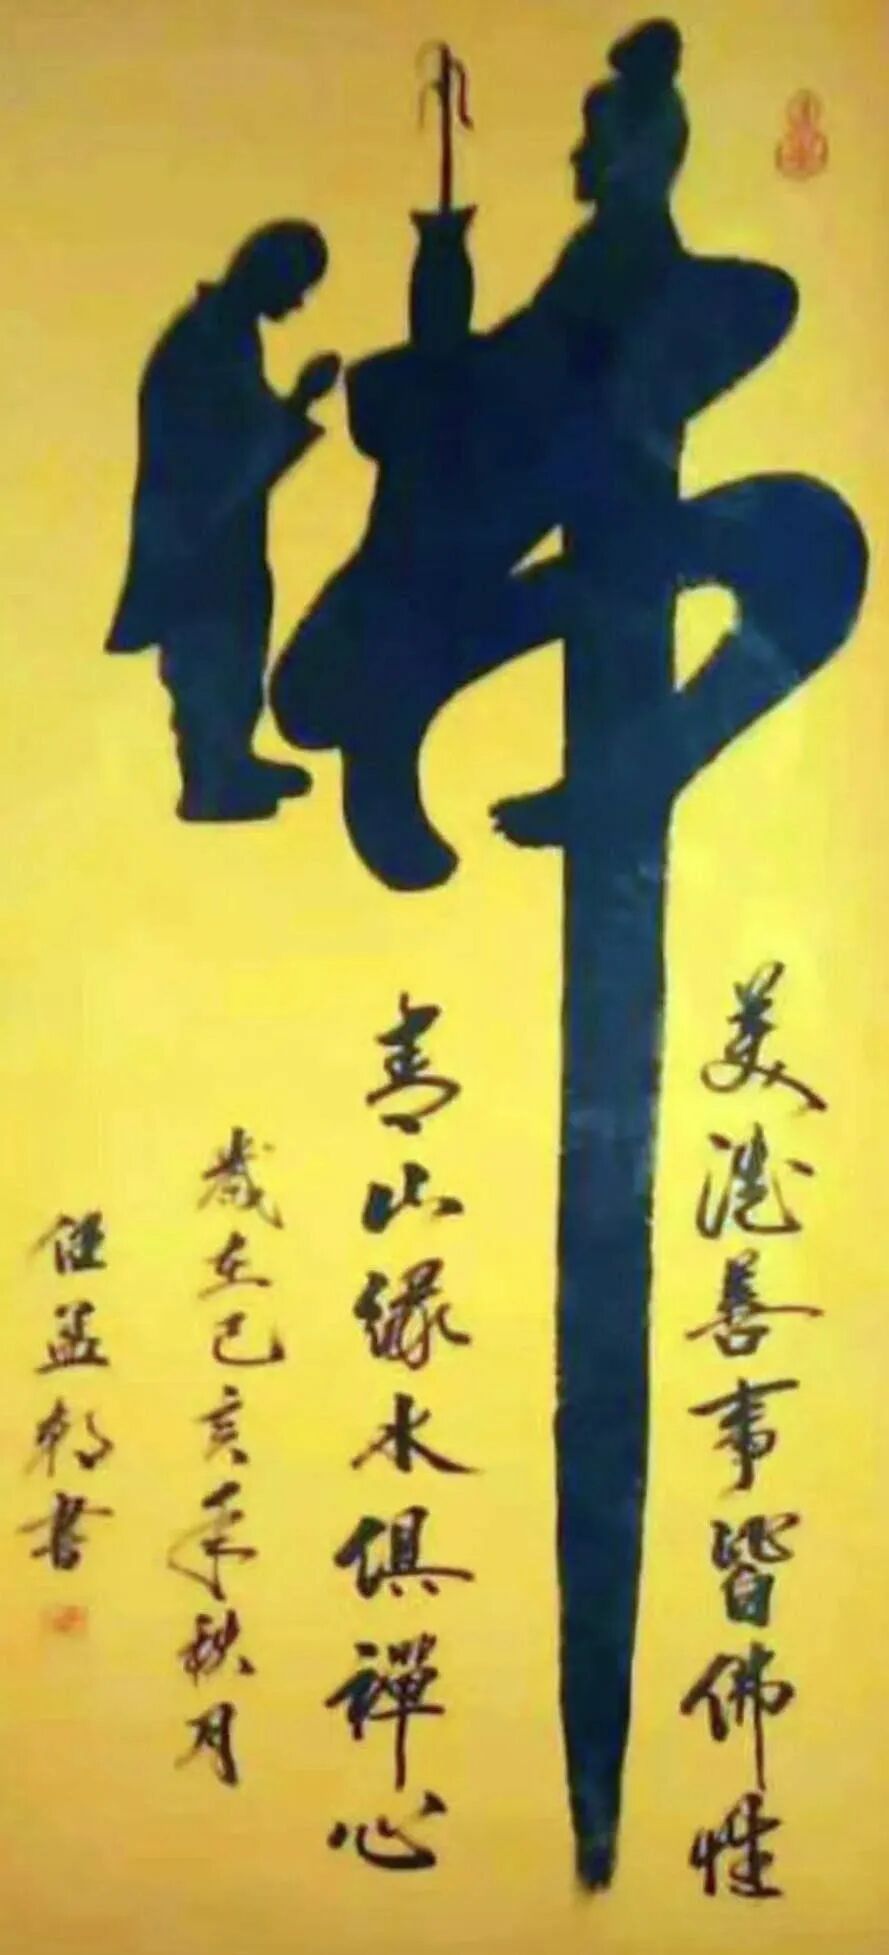 佛
美德善事皆佛性
青山緑水俱禪心
歲在己亥年秋月
任孟书